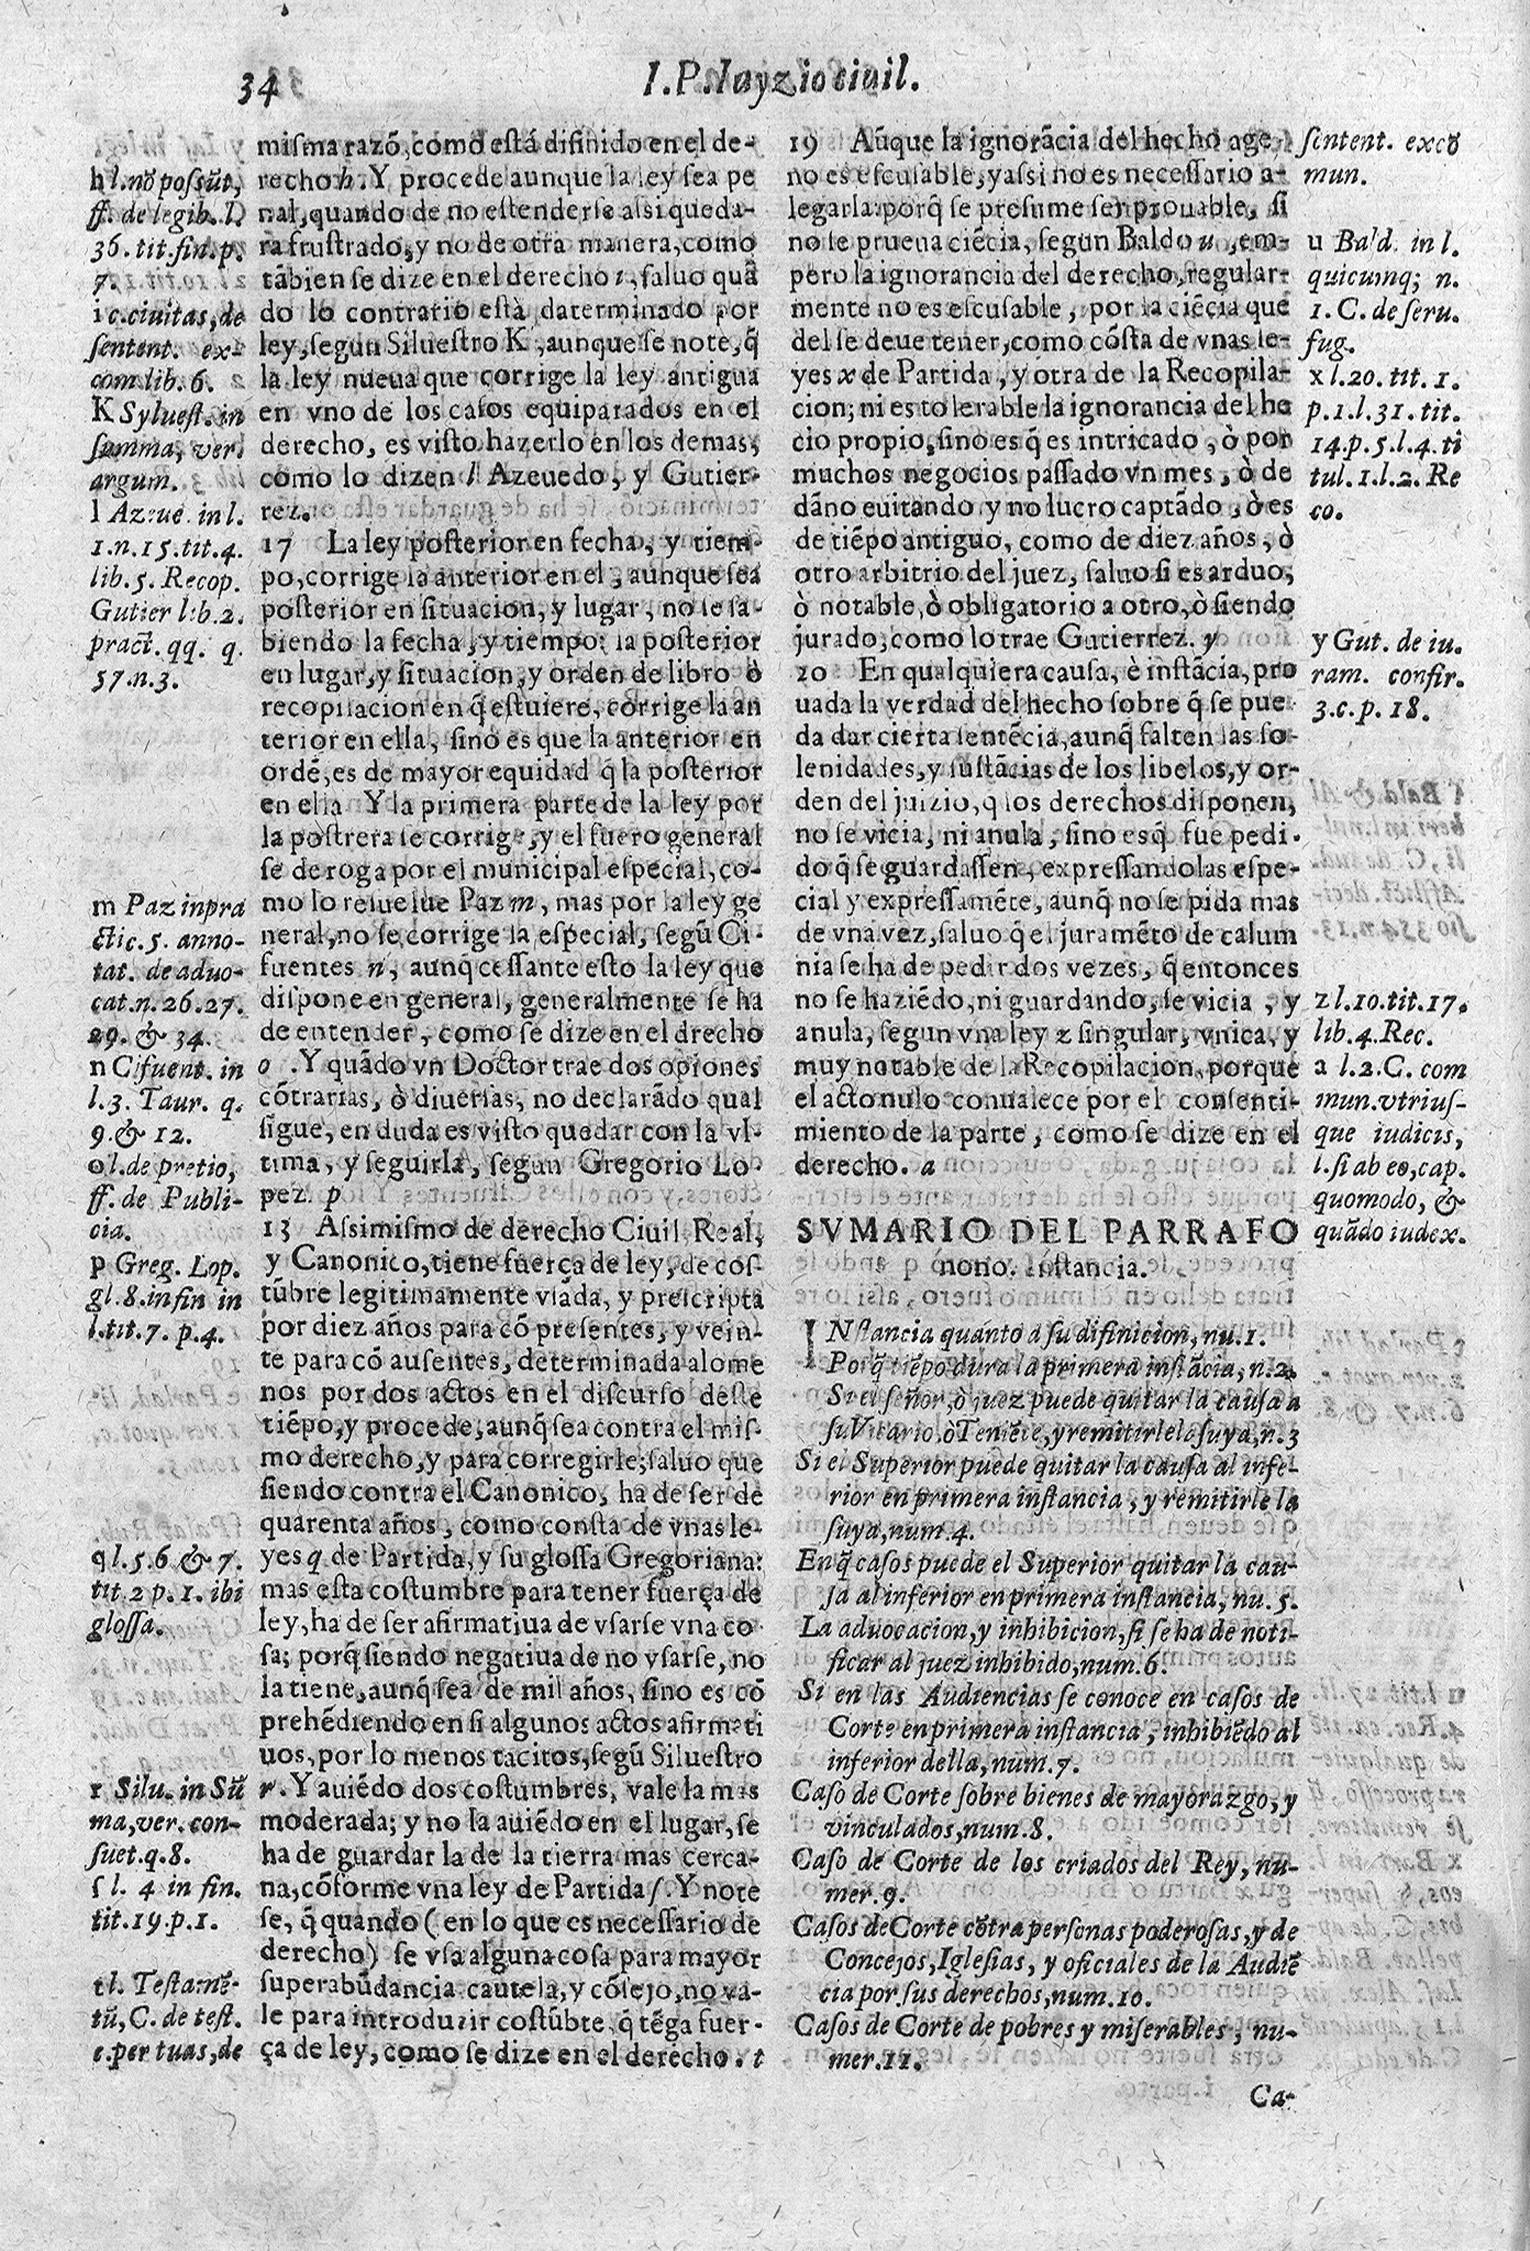 34
I.P. Iuyzio ciuil.
h l.nõ possũt,
ff. de legib. l.
36. tit. fin. p.
7.
i c. ciuitas, de
sentent. ex-
com lib. 6.
K Syluest. in
summa, ver.
argum.
l Azeue. in l.
1.n.15.tit.4.
lib. 5. Recop.
Gutier lib.2.
pract. qq. q.
57.n.3.
m Paz in pra
ctic. 5. anno-
tat. de aduo-
cat. n. 26.27.
29. & 34.
n Cifuent. in
l.3. Taur. q.
9. & 12.
o l. de pretio,
ff. de Publi-
cia.
p Greg. Lop.
gl. 8. in fin in
l. tit. 7. p. 4.
q l. 5. 6 & 7.
tit. 2 p. 1. ibi
glossa.
r Silu. in Sũ
ma, ver. con-
suet. q. 8.
ſ l. 4 in fin.
tit. 19. p. 1.
t l. Testamẽ-
tũ, C. de test.
c. per tuas, de
misma razõ, como està difinido en el de-
recho h. Y procede aunque la ley sea pe
nal, quando de no estenderse assi queda-
ra frustrado, y no de otra manera, como
tãbien se dize en el derecho i, saluo quã
do lo contrario està daterminado por
ley, segun Siluestro K, aunque se note, q̃
la ley nueua que corrige la ley antigua
en vno de los casos equiparados en el
derecho, es visto hazerlo en los demas,
como lo dizen l Azeuedo, y Gutier-
rez.
17 La ley posterior en fecha, y tiem-
po, corrige la anterior en el, aunque sea
posterior en situacion, y lugar, no se sa-
biendo la fecha, y tiempo: la posterior
en lugar, y situacion, y orden de libro ò
recopilacion en q̃ estuiere, corrige la an
terior en ella, sino es que la anterior en
ordẽ, es de mayor equidad q̃ la posterior
en ella Y la primera parte de la ley por
la postrera se corrige, y el fuero general
se deroga por el municipal especial, co-
mo lo resuelue Paz m, mas por la ley ge
neral, no se corrige la especial, segũ Ci-
fuentes n, aunq̃ cessante esto la ley que
dispone en general, generalmente se ha
de entender, como se dize en el drecho
o. Y quãdo vn Doctor trae dos opiones
cõtrarias, ò diuersas, no declarãdo qual
sigue, en duda es visto quedar con la vl-
tima, y seguirla, segun Gregorio Lo-
pez. p
13 Assimismo de derecho Ciuil, Real,
y Canonico, tiene fuerça de ley, de cos-
tũbre legitimamente vsada, y prescripta
por diez años para cõ presentes, y vein-
te para cõ ausentes, determinada alome
nos por dos actos en el discurso deste
tiẽpo, y procede, aunq̃ sea contra el mis-
mo derecho, y para corregirle; saluo que
siendo contra el Canonico, ha de ser de
quarenta años, como consta de vnas le-
yes q de Partida, y su glossa Gregoriana:
mas esta costumbre para tener fuerça de
ley, ha de ser afirmatiua de vsarse vna co
sa; porq̃ siendo negatiua de no vsarse, no
la tiene, aunq̃ sea de mil años, sino es cõ
prehẽdiendo en si algunos actos afirmati
uos, por lo menos tacitos, segũ Siluestro
r. Y auiẽdo dos costumbres, vale la mas
moderada; y no la auiẽdo en el lugar, se
ha de guardar la de la tierra mas cerca-
na, cõforme vna ley de Partida ſ. Y note
se, q̃ quando (en lo que es necessario de
derecho) se vsa alguna cosa para mayor
superabũdancia cautela, y cõsejo, no va-
le para introduzir costũbre, q̃ tẽga fuer-
ça de ley, como se dize en el derecho. t
19 Aũque la ignorãcia del hecho age,
no es escusable, y assi no es necessario a-
legarla: porq̃ se presume ser prouable, si
no se prueua ciẽcia, segun Baldo u, em-
pero la ignorancia del derecho, regular-
mente no es escusable, por la ciẽcia que
del se deue tener, como cõsta de vnas le-
yes x de Partida, y otra de la Recopila-
cion; ni es tolerable la ignorancia del he
cio propio, sino es q̃ es intricado, ò por
muchos negocios passado vn mes, ò de
dãno euitando y no lucro captãdo, ò es
de tiẽpo antiguo, como de diez años, ò
otro arbitrio del juez, saluo si es arduo,
ò notable, ò obligatorio a otro, ò siendo
jurado; como lo trae Gutierrez. y
20 En qualquiera causa, è instãcia, pro
uada la verdad del hecho sobre q̃ se pue
da dar cierta sentẽcia, aunq̃ falten las so-
lenidades, y sustãcias de los libelos, y or-
den del juizio, q los derechos disponen,
no se vicia, ni anula, sino es q̃ fue pedi-
do q̃ se guardassen, expressandolas espe-
cial y expressamẽte, aunq̃ no se pida mas
de vna vez, saluo q̃ el juramẽto de calum
nia se ha de pedir dos vezes, q̃ entonces
no se haziẽdo, ni guardando, se vicia, y
anula, segun vna ley z singular, vnica, y
muy notable de la Recopilacion, porque
el acto nulo conualece por el consenti-
miento de la parte, como se dize en el
derecho. a
SVMARIO DEL PARRAFO
nono. Instancia.
INstancia quanto a su difinicion, nu.1.
Porq̃ tiẽpo dura la primera instãcia, n.2.
Si el señor, ò juez puede quitar la causa a
su Vicario, ò Teniẽte, y remitirle la suya, n.3
Si el Superior puede quitar la causa al infe-
rior en primera instancia, y remitirle la
suya, num.4.
En q̃ casos puede el Superior quitar la cau-
sa al inferior en primera instancia, nu. 5.
La aduocacion, y inhibicion, si se ha de noti-
ficar al juez inhibido, num.6.
Si en las Audiencias se conoce en casos de
Corte en primera instancia, inhibiẽdo al
inferior della, num.7.
Caso de Corte sobre bienes de mayorazgo, y
vinculados, num.8.
Caso de Corte de los criados del Rey, nu-
mer. 9.
Casos de Corte cõtra personas poderosas, y de
Concejos, Iglesias, y oficiales de la Audiẽ
cia por sus derechos, num.10.
Casos de Corte de pobres y miserables, nu-
mer.11.
Ca-
sentent. excõ
mun.
u Bald. in l.
quicumq; n.
1. C. de seru.
fug.
x l.20. tit. 1.
p. 1. l. 31. tit.
14. p. 5. l. 4. ti
tul. 1. l. 2. Re
co.
y Gut. de iu.
ram. confir.
3. c. p. 18.
z l.10.tit.17.
lib. 4. Rec.
a l. 2. C. com
mun. vtrius-
que iudicis,
l. si ab eo, cap.
quomodo, &
quãdo iudex.